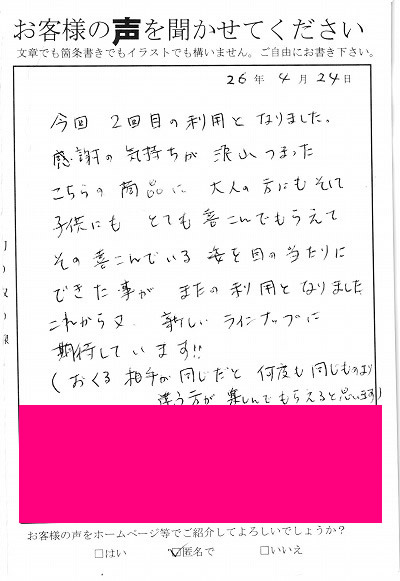 お客様の声を聞かせてください
文章でも箇条書きでもイラストでも構いません。ご自由にお書き下さい。
26年 4月 24日
今回 2回目の利用と なりました。
感謝の気持ちが 沢山 つまった
こちらの 商品に 大人の方にもそして
子供にも とても 喜こんでもらえて
その 喜こんでいる 姿を目の当たりに
できた事が またの利用と なりました
これから又、新しい ラインナップに
期待して います!!
(おくる 相手が 同じだと 何度も 同じものより
違う方が 楽しんでもらえると思います)
お客様の声をホームページ等でご紹介してよろしいでしょうか?
□はい ☑匿名で □いいえ